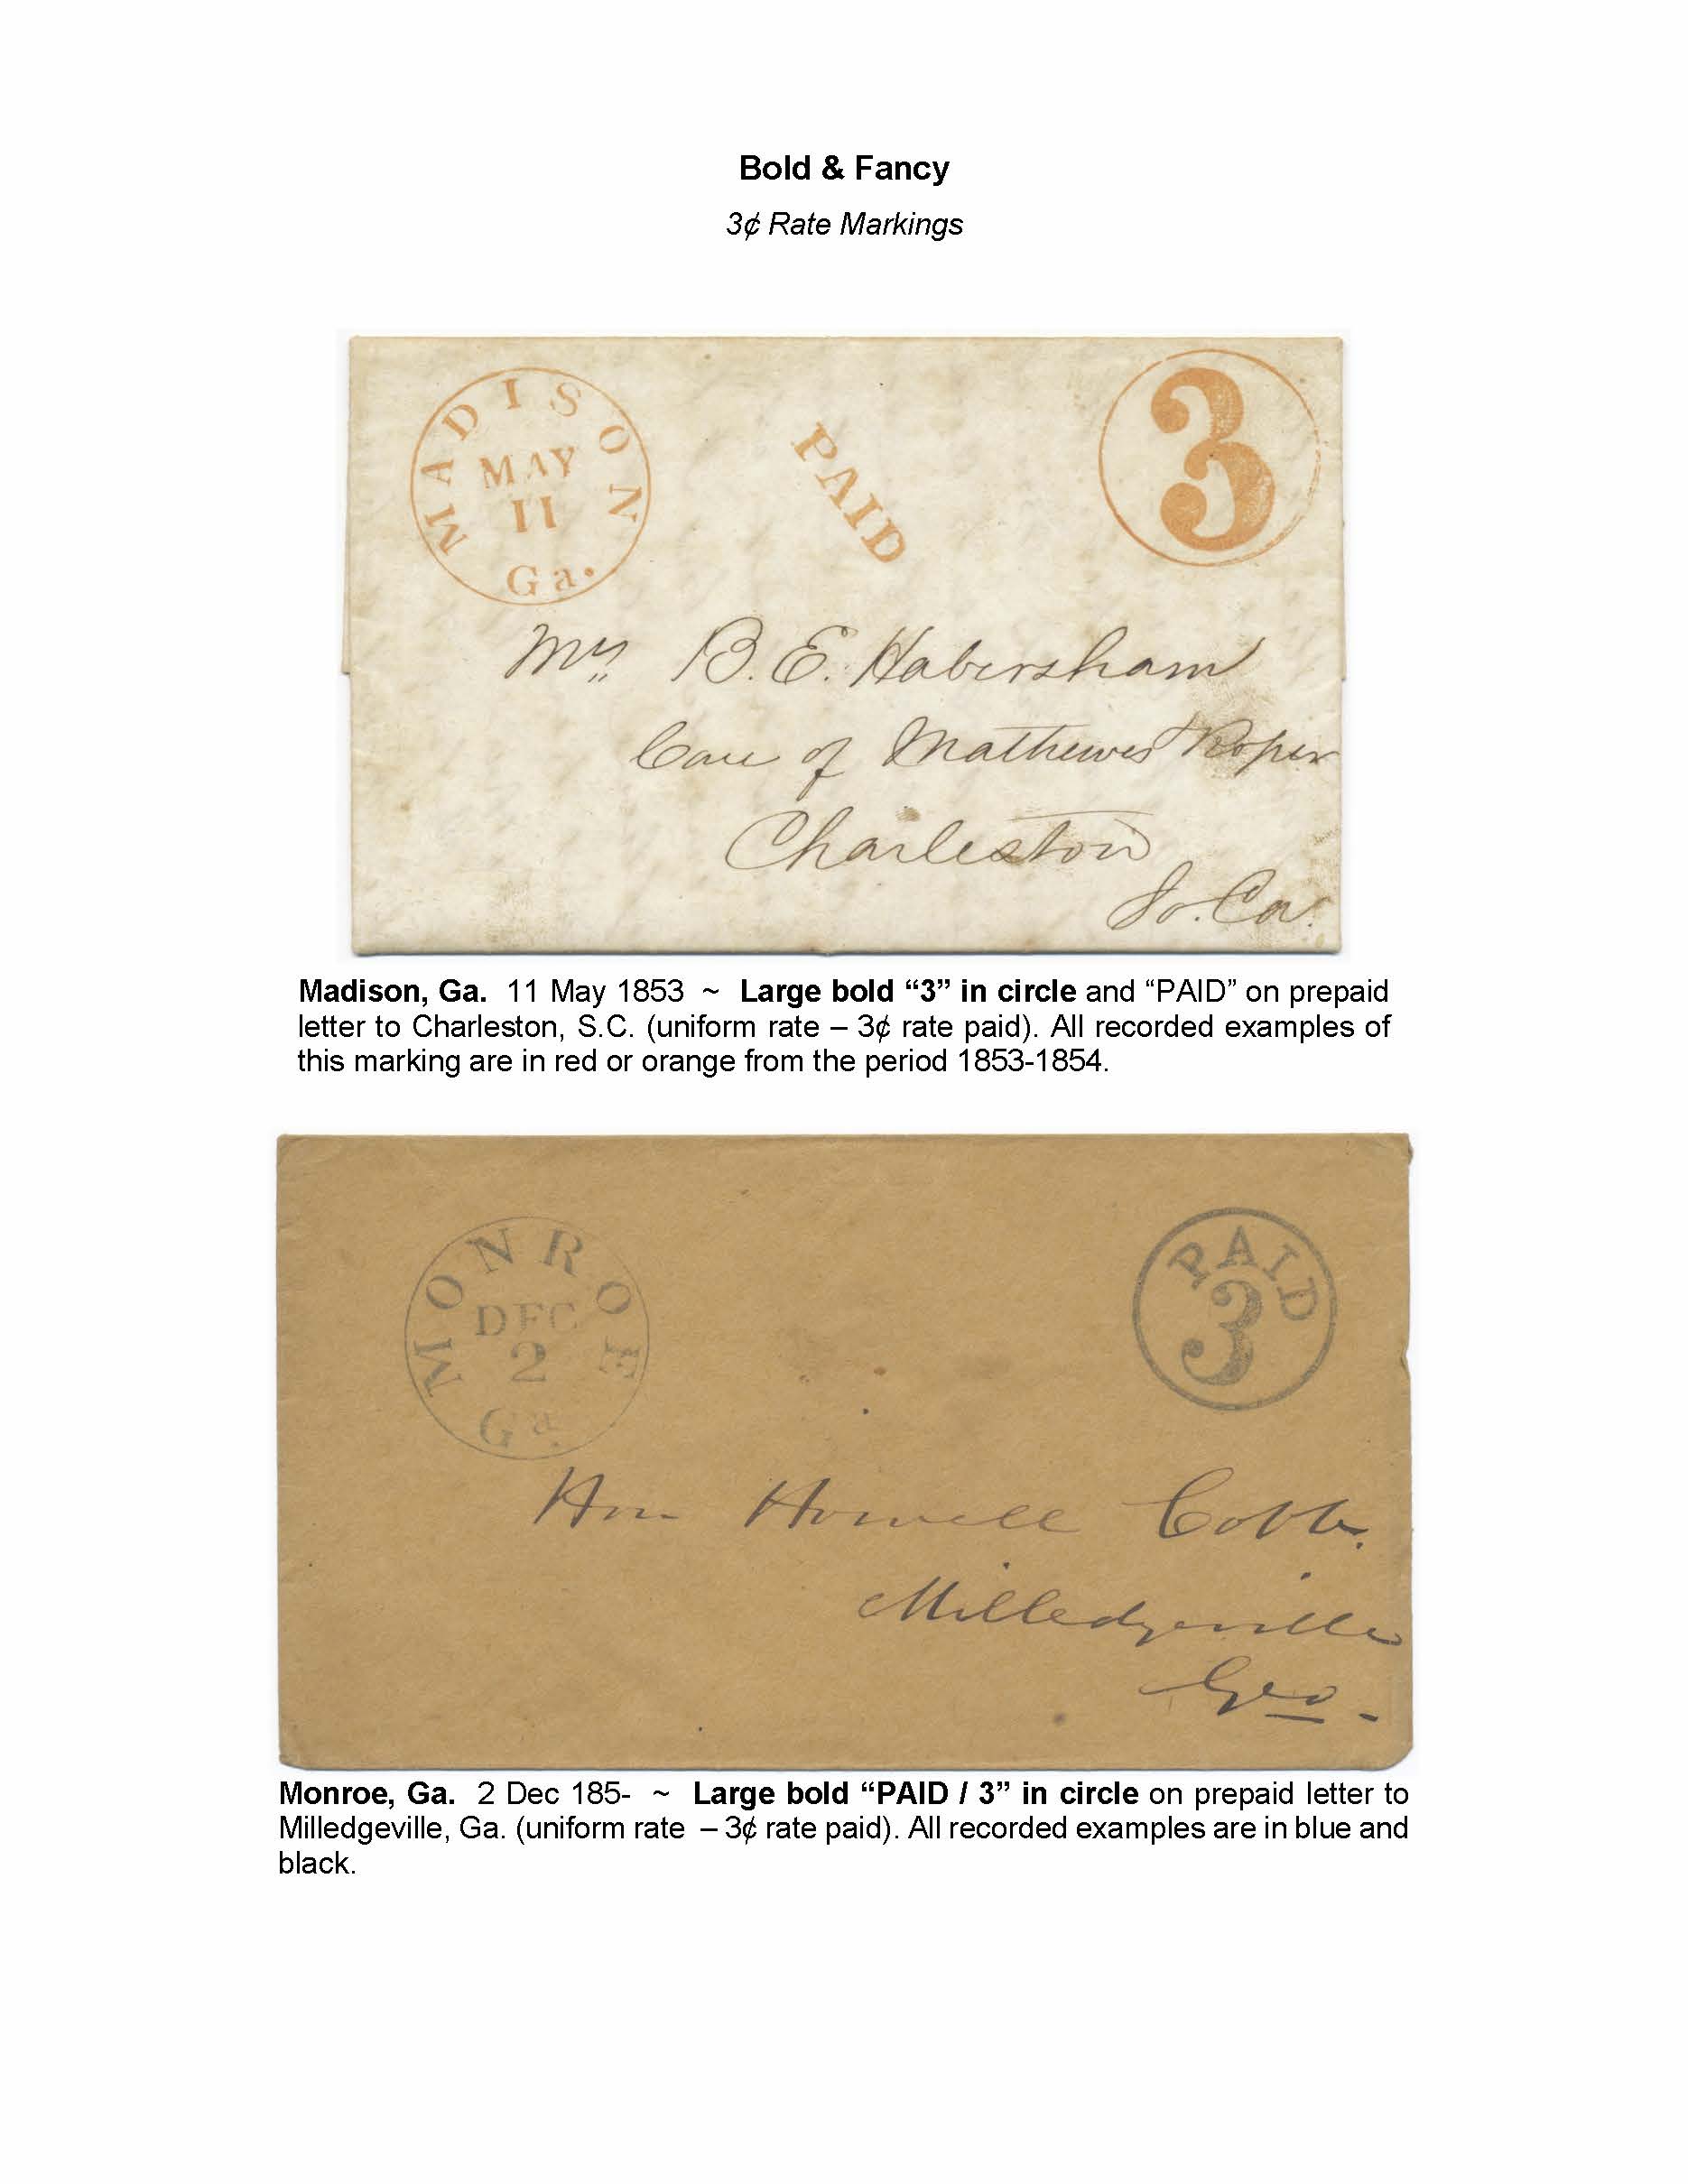 Bold & Fancy
3¢ Rate Markings
MADISON
MAY
11
Ga.
PAID
3
Mrs. B. E. Habersham
Care of Mathewes Roper
Charleston
So. Ca.
Madison, Ga.  11 May 1853  ~  Large bold “3” in circle and “PAID” on prepaid
letter to Charleston, S.C. (uniform rate – 3¢ rate paid). All recorded examples of
this marking are in red or orange from the period 1853-1854.
MONROE
DEC
2
Ga.
PAID
3
Hon Howell Cobb.
Milledgeville
Geo -
Monroe, Ga.  2 Dec 185-  ~  Large bold “PAID / 3” in circle on prepaid letter to
Milledgeville, Ga. (uniform rate – 3¢ rate paid). All recorded examples are in blue and
black.